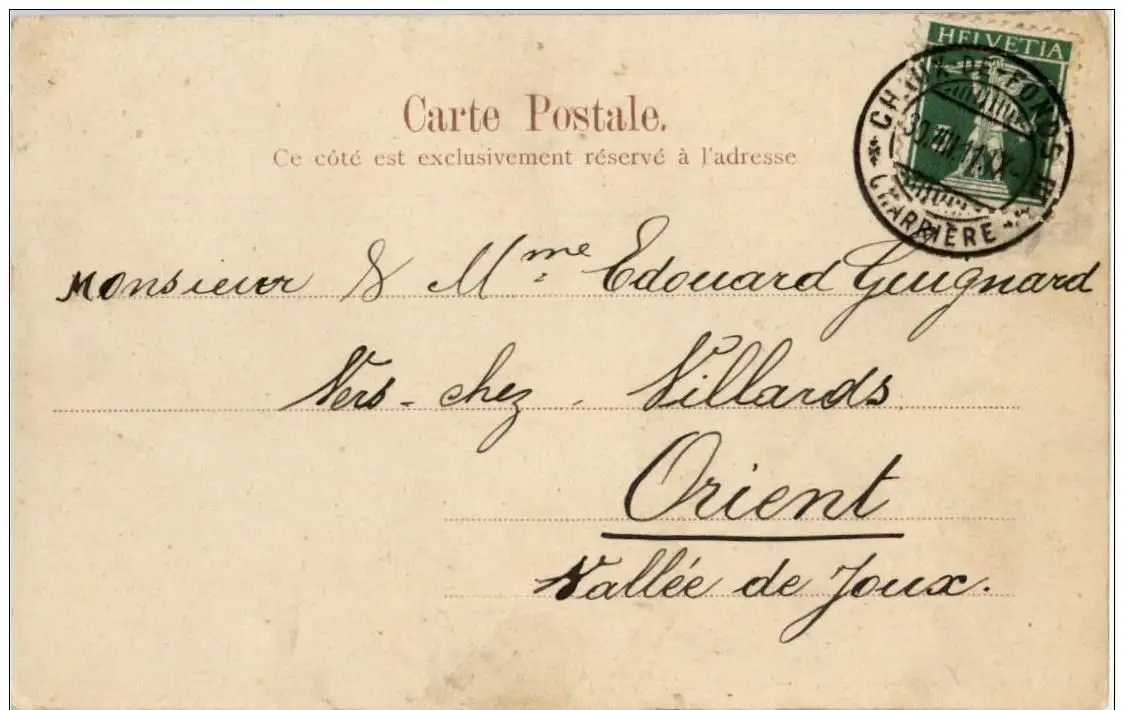 HELVETIA
CHAUX-DE-FONDS
CHARRIÈRE
Carte Postale.
Ce côté est exclusivement réservé à l'adresse
Monsieur & Mme Edouard Guignard
Vers-chez-Villards
Orient
Vallée de Joux.